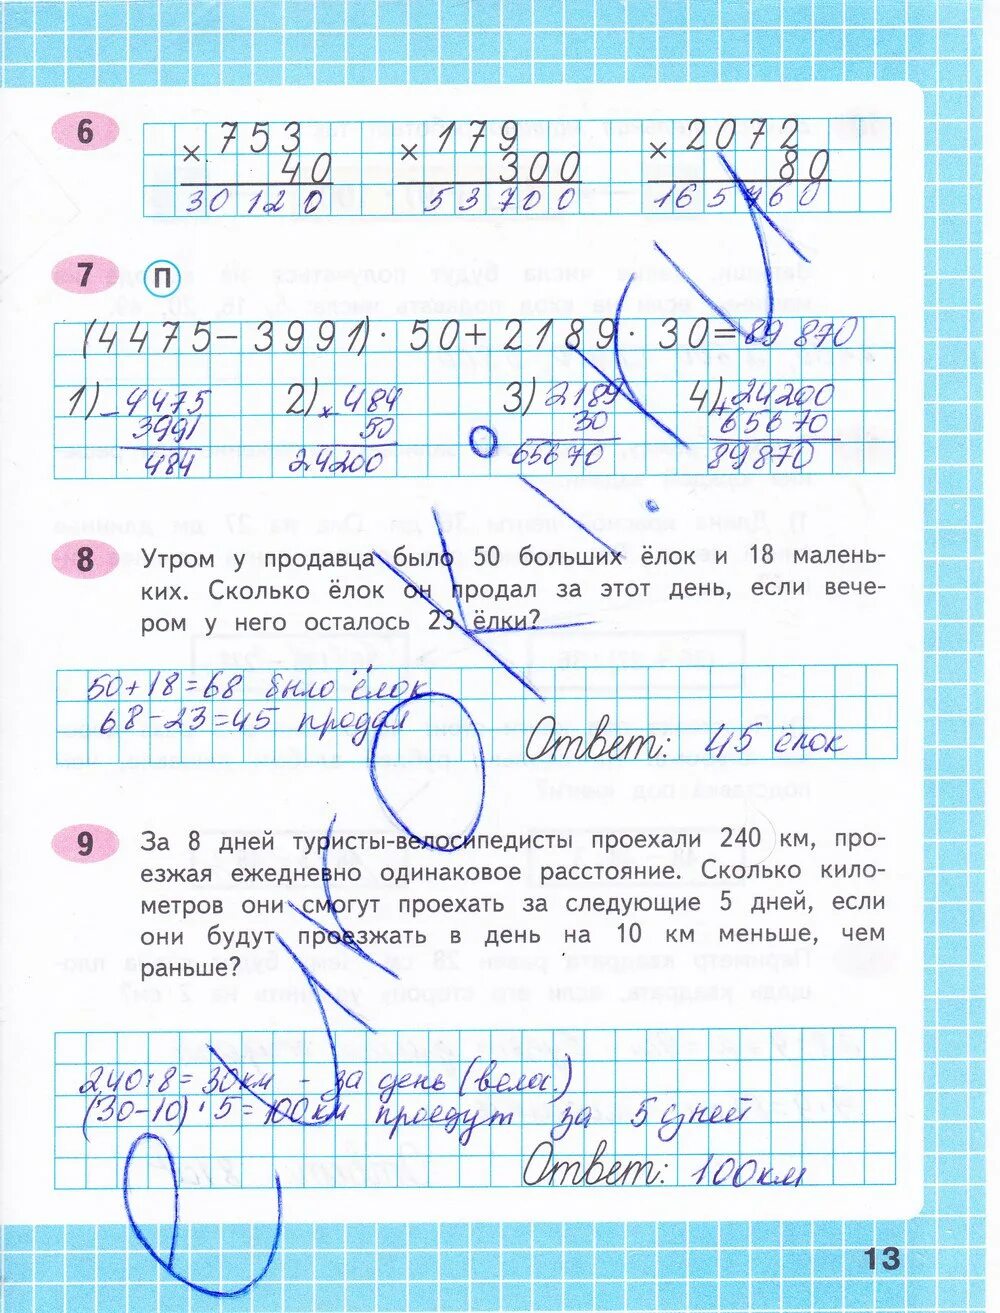 6
× 753
40
30120
× 179
300
53700
× 2072
80
165760
7 П
(4475 − 3991) · 50 + 2189 · 30 = 89 870
1) − 4475
3991
484
2) × 484
50
24200
3) 2189
30
65670
4) + 24200
65670
89870
8 Утром у продавца было 50 больших ёлок и 18 малень-
ких. Сколько ёлок он продал за этот день, если вече-
ром у него осталось 23 ёлки?
50 + 18 = 68 было ёлок
68 − 23 = 45 продал
Ответ: 45 ёлок
9 За 8 дней туристы-велосипедисты проехали 240 км, про-
езжая ежедневно одинаковое расстояние. Сколько кило-
метров они смогут проехать за следующие 5 дней, если
они будут проезжать в день на 10 км меньше, чем
раньше?
240 : 8 = 30 км − за день (вела.)
(30 − 10) · 5 = 100 км проедут за 5 дней
Ответ: 100 км
13